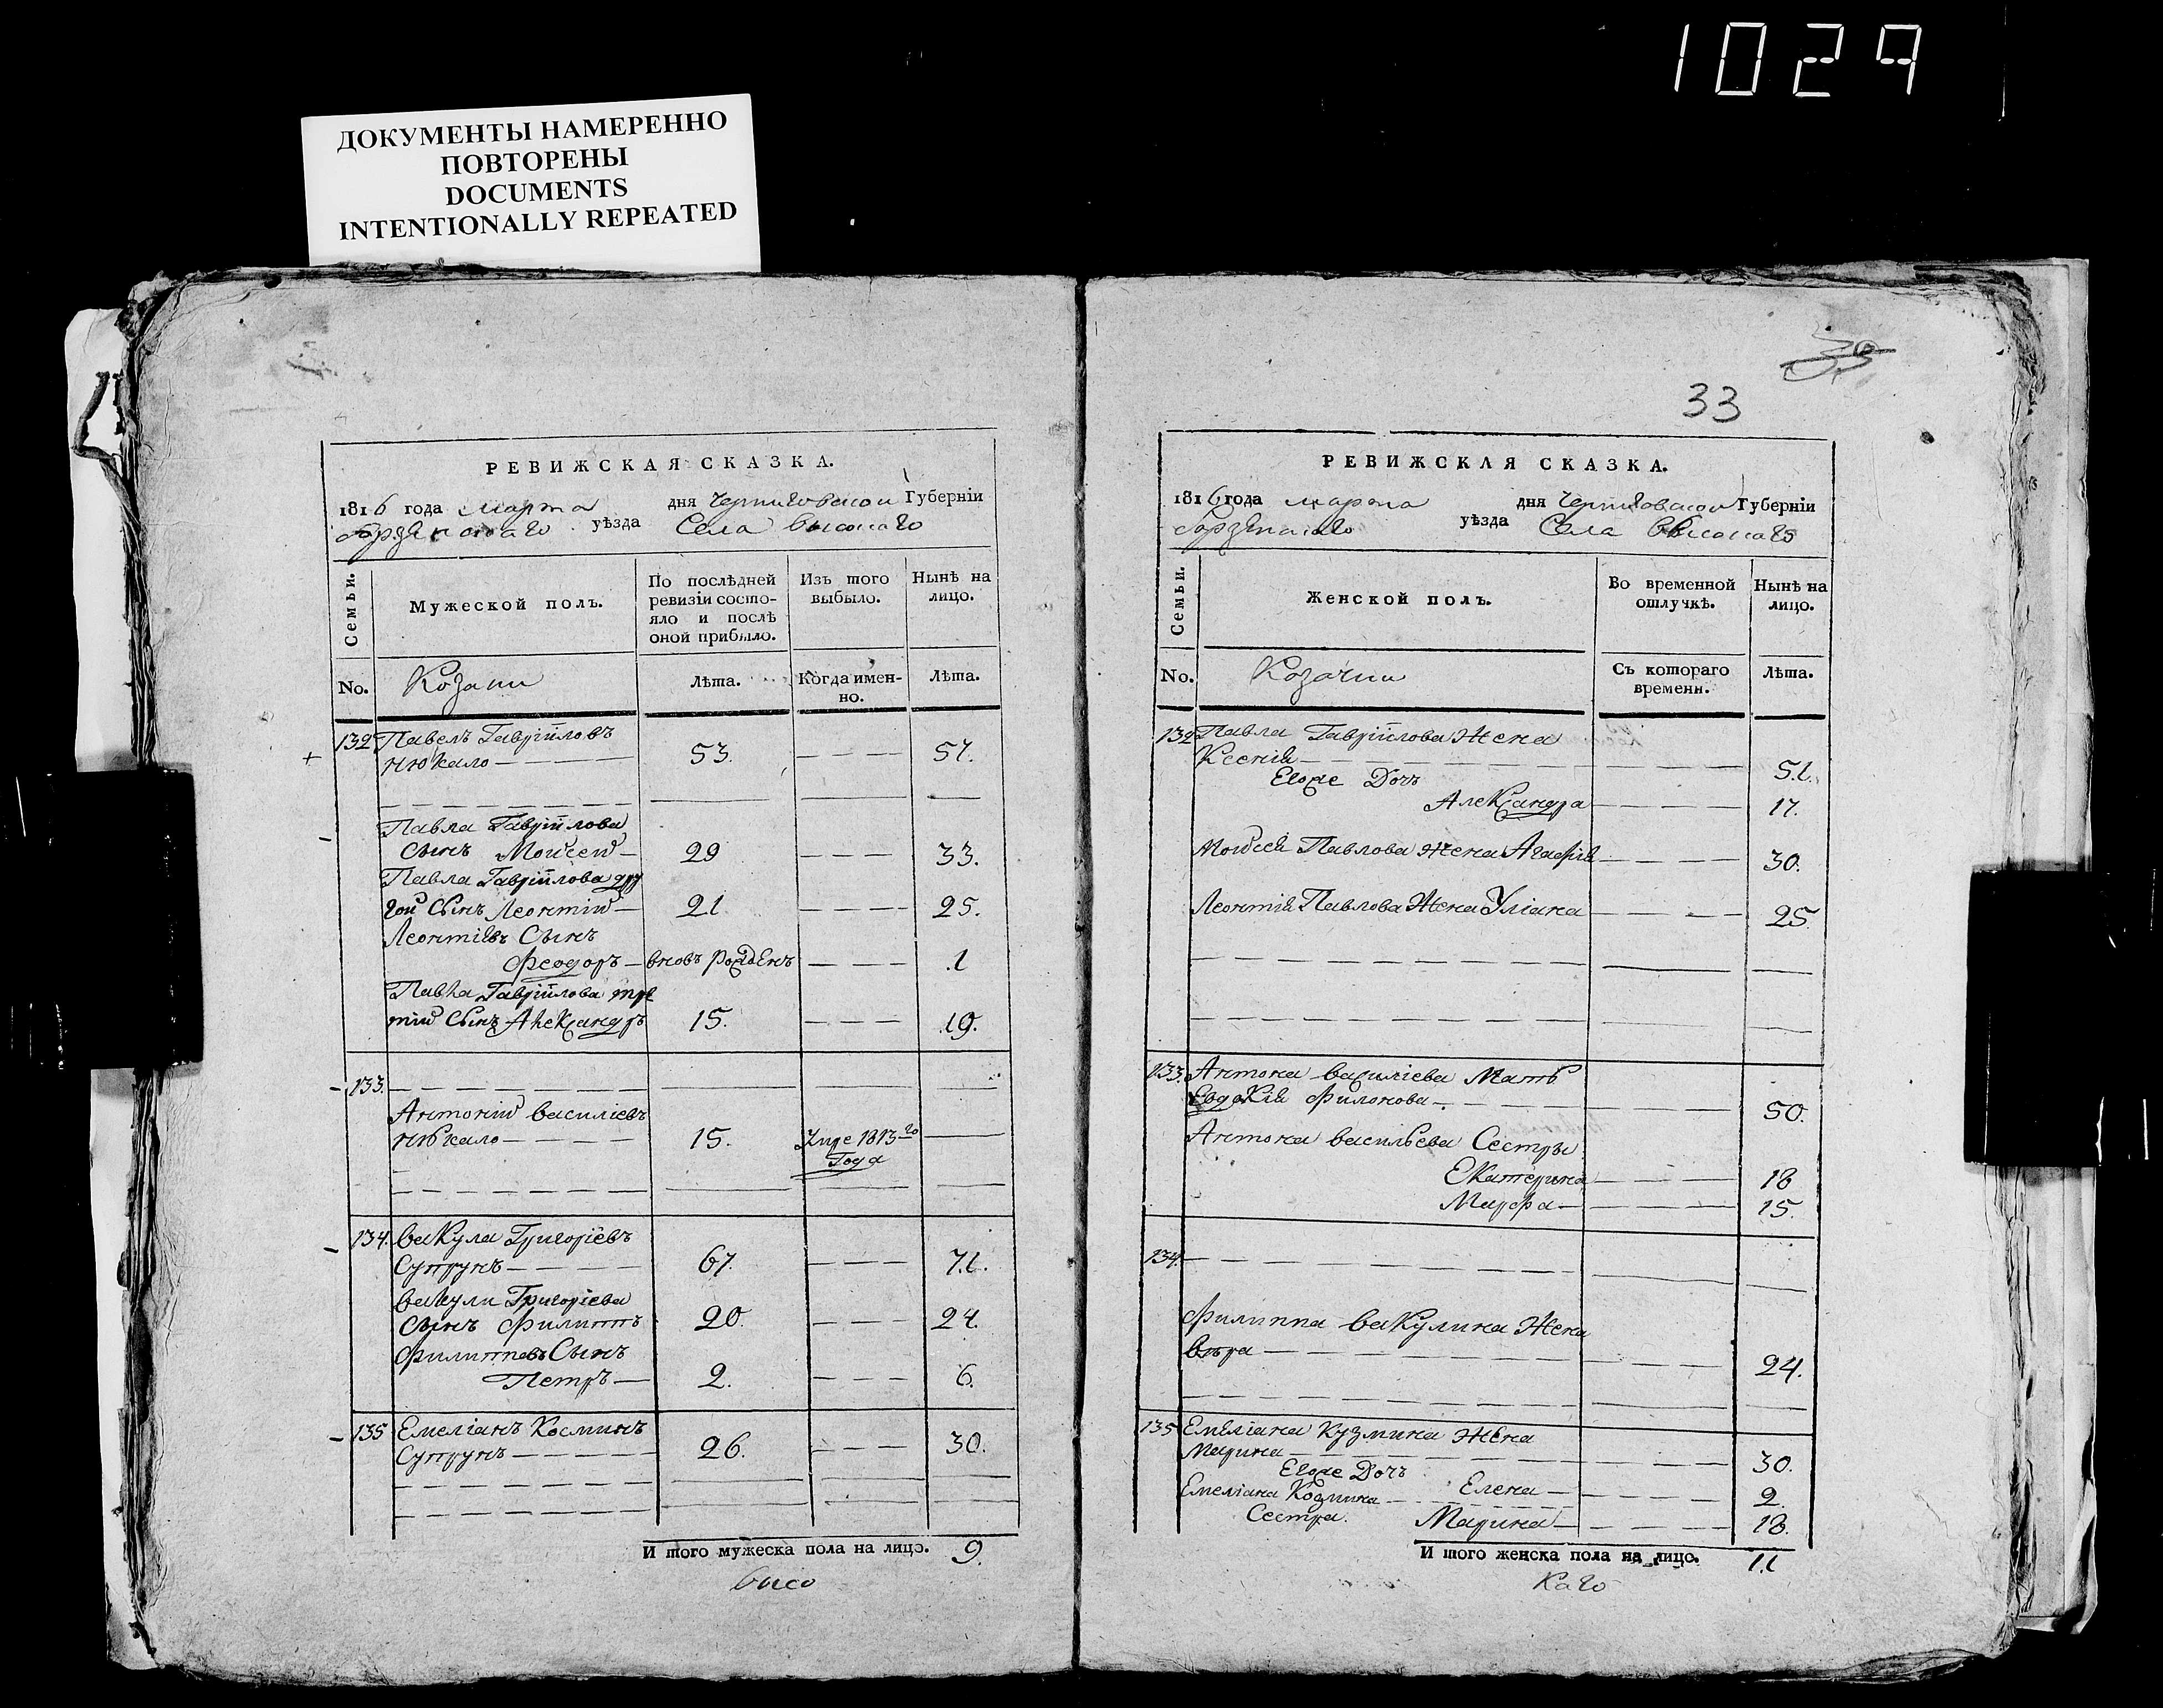 1029
ДОКУМЕНТЫ НАМЕРЕННО
ПОВТОРЕНЫ
DOCUMENTS
INTENTIONALLY REPEATED
РЕВИЖСКАЯ СКАЗКА.
1816 года марта дня Черниговской Губерніи
уѣзда Села Высокаго
Семьи.
Мужеской полъ.
По послѣдней ревизіи состо-
яло и послѣ
оной прибыло.
Изъ того
выбыло.
Нынѣ на
лицо.
No.
Козаки
Лѣта.
Когда имен-
но.
Лѣта.
132 Павелъ Гавріиловъ
Нюкало 53. 57.
Павла Гавріилова
сынъ Моисей 29 33.
Павла Гавріилова дру
гой Сынъ Леонтій 21 25.
Леонтіевъ Сынъ
Феодоръ вновь рожденъ 1
Павла Гавріилова тре
тій Сынъ Александръ 15. 19.
133.
Антоній Василіевъ
Нюкало 15. Умре 1813го
Года
134. Вакула Григоріевъ
Супрунъ 67. 71.
Вакули Григоріева
Сынъ Филиппъ 20. 24.
Филипповъ Сынъ
Петръ 2. 6.
135 Емеліанъ Косминъ
Супрунъ 26. 30.
И того мужеска пола на лицо. 9.
Высо
33
РЕВИЖСКАЯ СКАЗКА.
1816 года марта дня Черниговской Губерніи
уѣзда Села Высокаго
Семьи.
Женской полъ.
Во временной
отлучкѣ.
Нынѣ на
лицо.
No.
Козачки
Съ котораго
времени.
Лѣта.
132 Павла Гавріилова Жена
Ксенія 51.
Егоже Дочь
Александра 17.
Моисея Павлова жена Агафія 30.
Леонтія Павлова Жена Уліана 25.
133. Антона Василіева Мать
Евдокія Филонова 50.
Антона Васильева Сестры
Екатерина 18
Марфа 15.
134.
Филиппа Вакулина Жена
Вѣра 24.
135 Емеліана Кузмина Жена
Марина 30.
Егоже Дочь
Елена 2.
Емеліана Козмина
Сестра. Марина 18.
И того женска пола на лицо. 11
каго